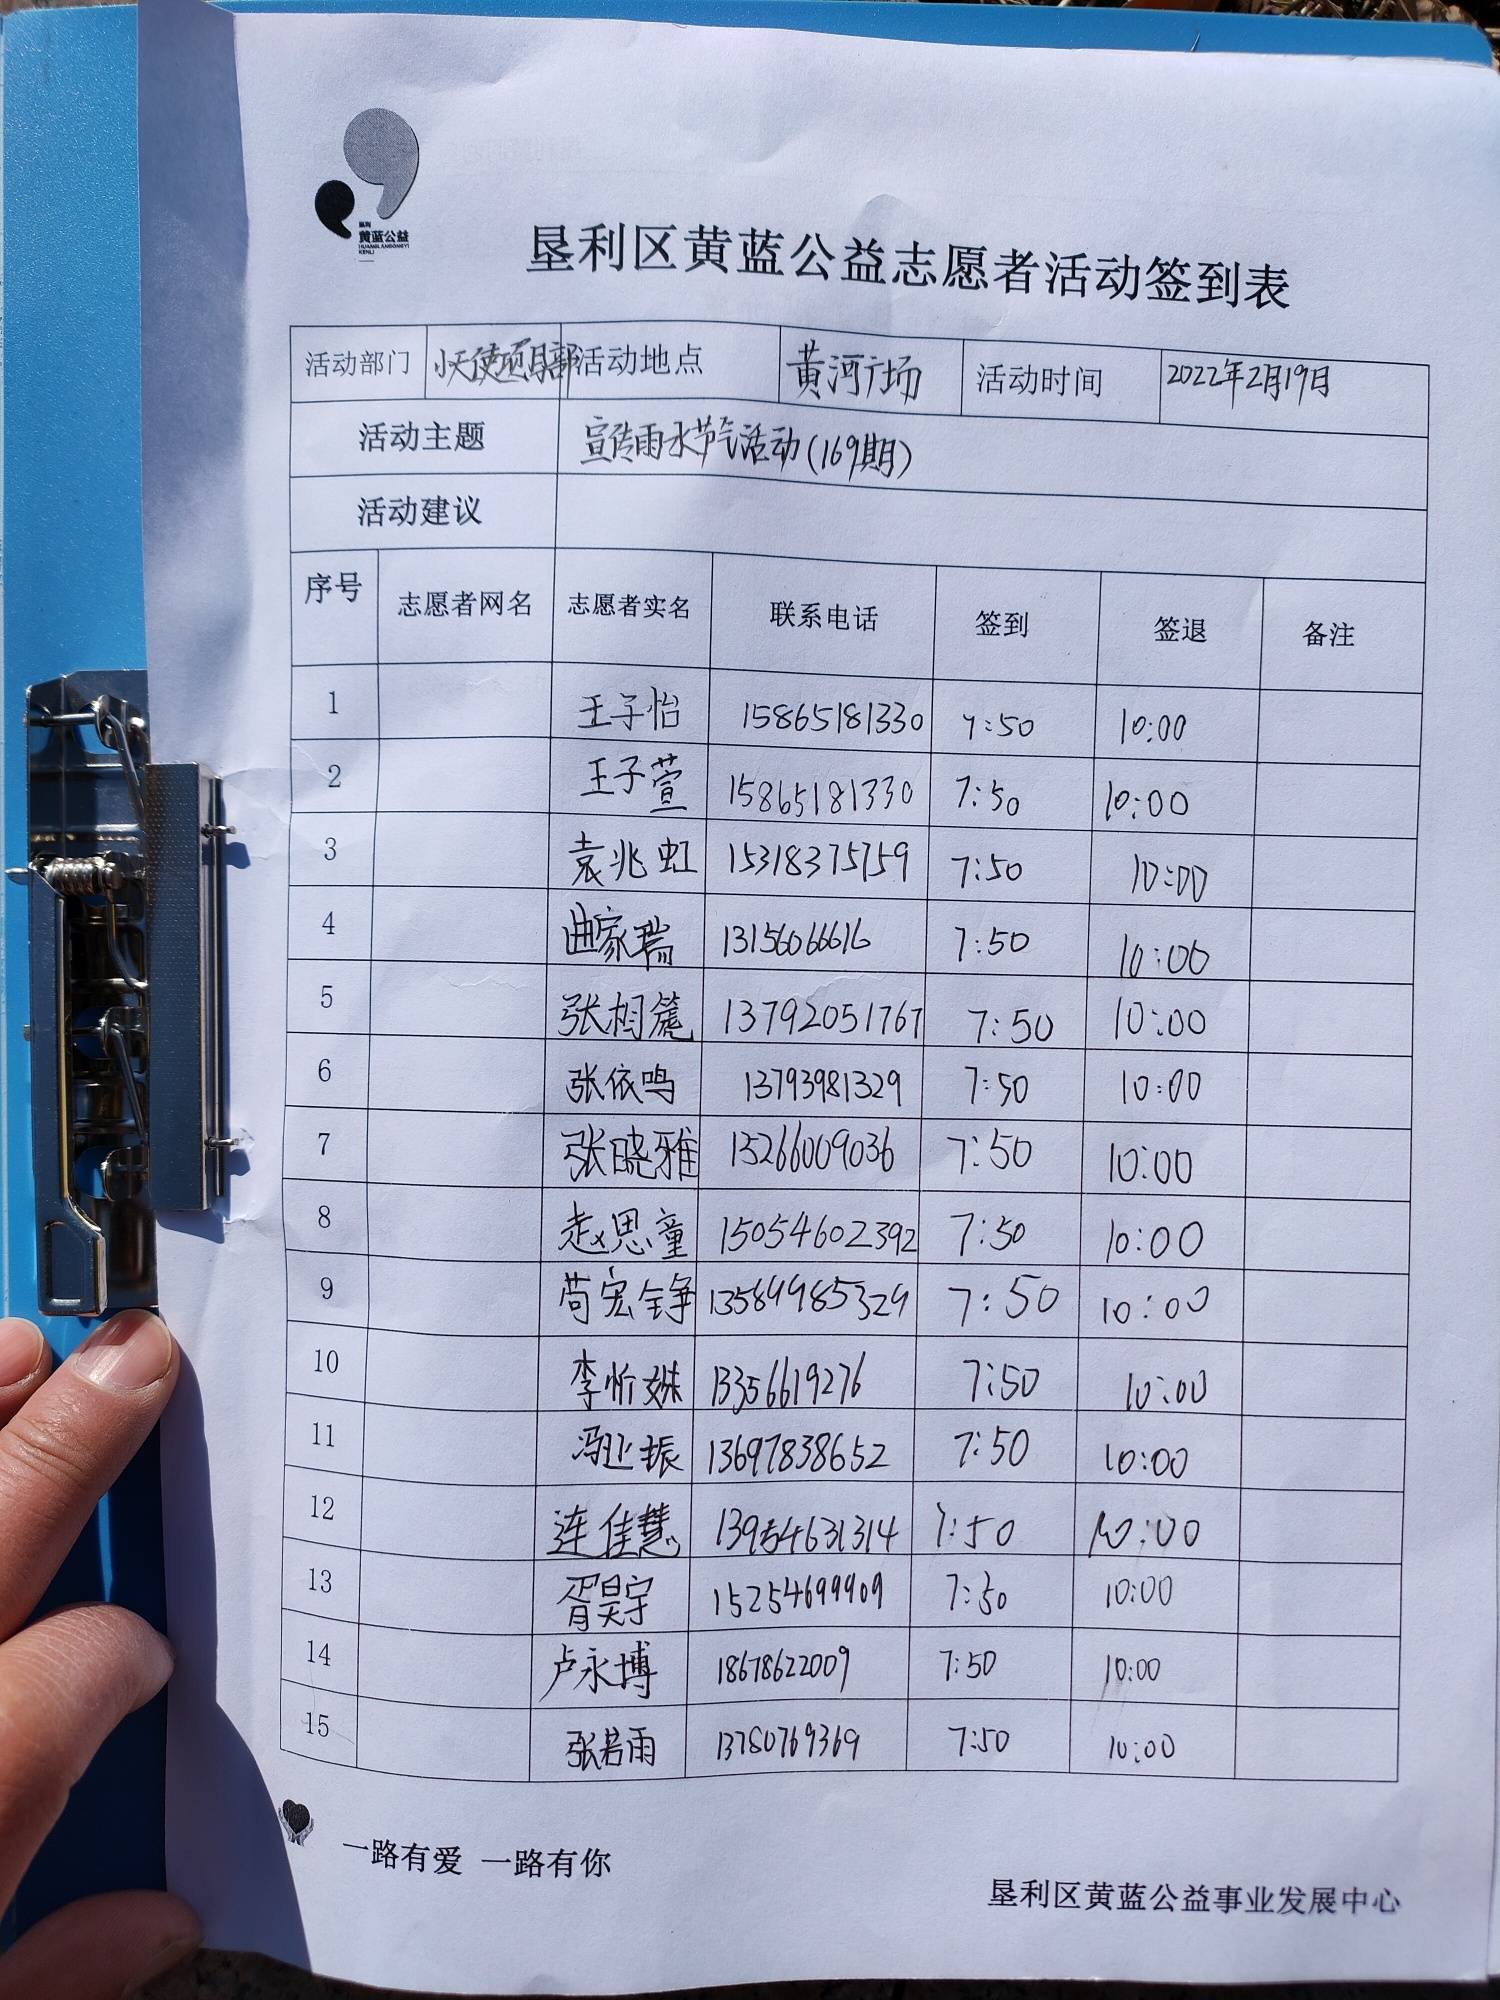 垦利
黄蓝公益
HUANGLANGONGYI
KENLI
垦利区黄蓝公益志愿者活动签到表
活动部门 小天使项目部 活动地点 黄河广场 活动时间 2022年2月19日
活动主题 宣传雨水节气活动(169期)
活动建议
序号 志愿者网名 志愿者实名 联系电话 签到 签退 备注
1 王子怡 15865181330 7:50 10:00
2 王子萱 15865181330 7:50 10:00
3 袁兆虹 15318375759 7:50 10:00
4 曲家瑞 13156066616 7:50 10:00
5 张相篪 13792051767 7:50 10:00
6 张依鸣 13793981329 7:50 10:00
7 张晓雅 13266009036 7:50 10:00
8 赵思童 15054602392 7:50 10:00
9 苟宏铮 13589985329 7:50 10:00
10 李忻姝 13356619276 7:50 10:00
11 冯延振 13697838652 7:50 10:00
12 连佳慧 13954631314 7:50 10:00
13 胥昊宇 15254699909 7:50 10:00
14 卢永博 18678622009 7:50 10:00
15 张若雨 13780769369 7:50 10:00
一路有爱 一路有你
垦利区黄蓝公益事业发展中心